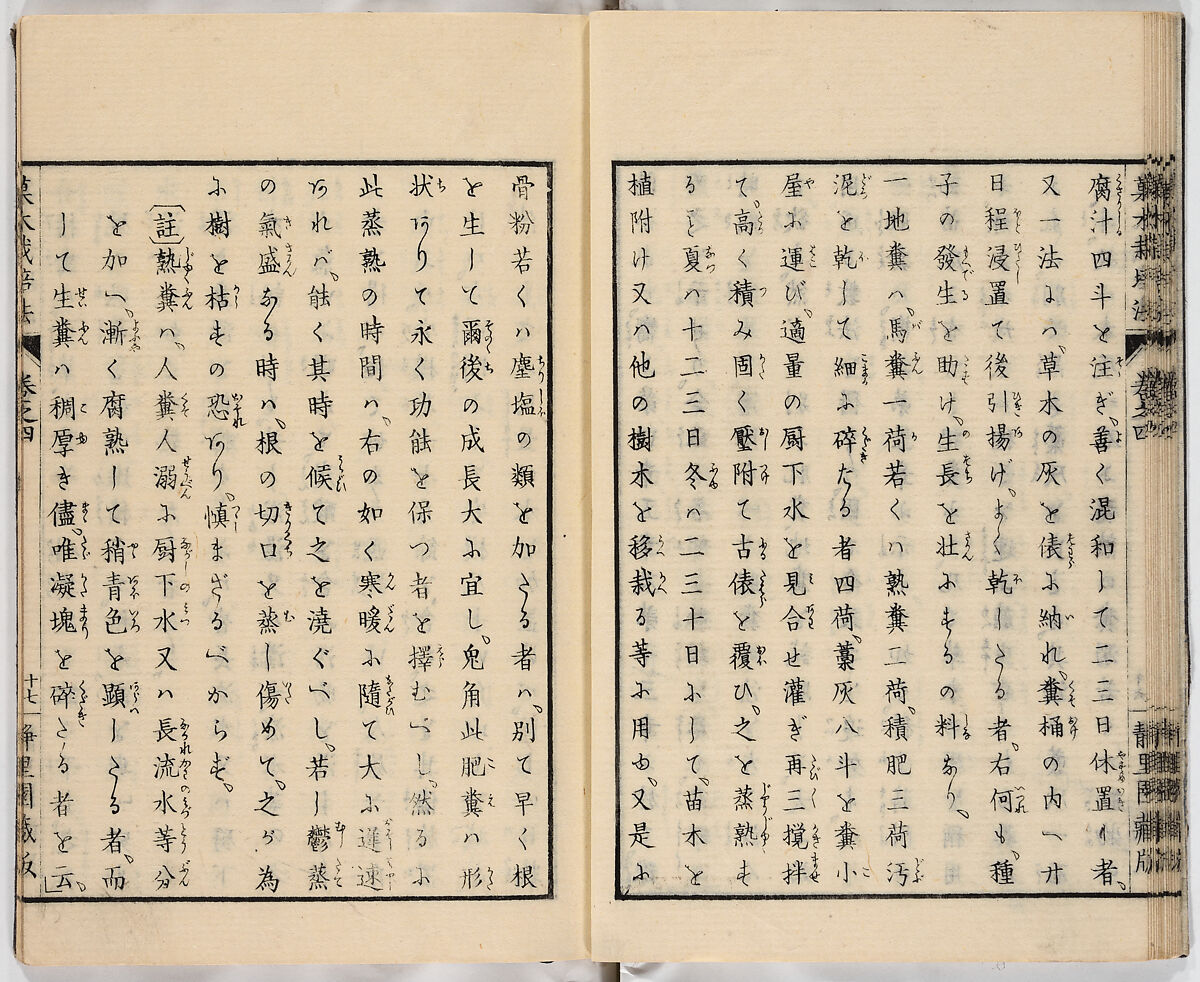 菓木栽培法 卷之四 静里園藏版
腐汁四斗を注ぎ、善く混和して二三日休置く者、
又一法には、草木の灰を俵に納れ、糞桶の内へ廿
日程浸置て後引揚げ、よく乾したる者、右何も、種
子の發生を助け、生長を壯にするの料なり、
一地糞ハ、馬糞一荷若くハ熟糞二荷、積肥三荷汚
泥を乾して細に碎たる者四荷、藁灰八斗を糞小
屋に運び、適量の厨下水を見合せ灌ぎ再三攪拌
て、高く積み固く壓附て古俵を覆ひ、之を蒸熟も
ると夏ハ十二三日冬ハ二三十日にして、苗木を
植附け又ハ他の樹木を移栽る等に用也、又是に
骨粉若くハ塵塩の類を加たる者ハ、別て早く根
を生して爾後の成長大に宜し、鬼角此肥糞ハ形
状ありて永く功能を保つ者を擇むべし、然るに
此蒸熟の時間ハ、右の如く寒暖に隨て大に遲速
あれバ、能く其時を候て之を澆ぐべし、若し鬱蒸
の氣盛なる時ハ、根の切口を蒸し傷めて、之が為
に樹を枯すの恐あり、慎まざるべからず、
〔註〕熟糞ハ、人糞人溺に厨下水又ハ長流水等分
を加へ、漸く腐熟して稍青色を顕したる者、而
して生糞ハ稠厚き儘、唯凝塊を碎たる者を云、
菓木栽培法 卷之四 十七 静里園藏版